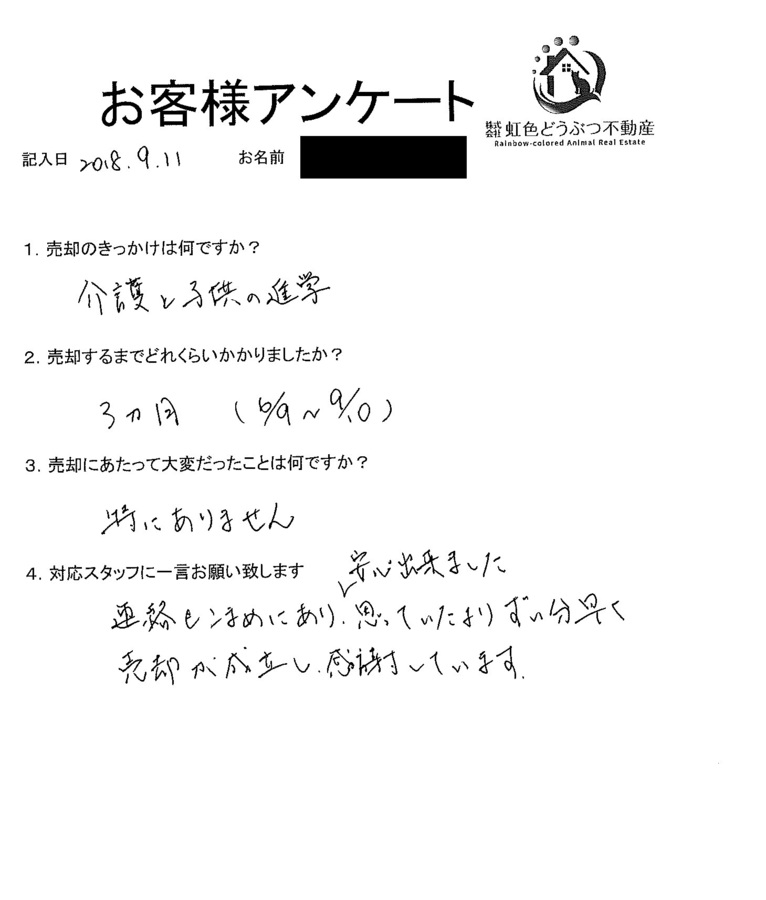 お客様アンケート
株式会社 虹色どうぶつ不動産
Rainbow-colored Animal Real Estate
記入日 2018.9.11 お名前
1. 売却のきっかけは何ですか？
介護と子供の進学
2. 売却するまでどれくらいかかりましたか？
3ヵ月 (6/9～9/10)
3. 売却にあたって大変だったことは何ですか？
特にありません
4. 対応スタッフに一言お願い致します
安心出来ました
連絡もこまめにあり、思っていたよりずい分早く
売却が成立し、感謝しています。